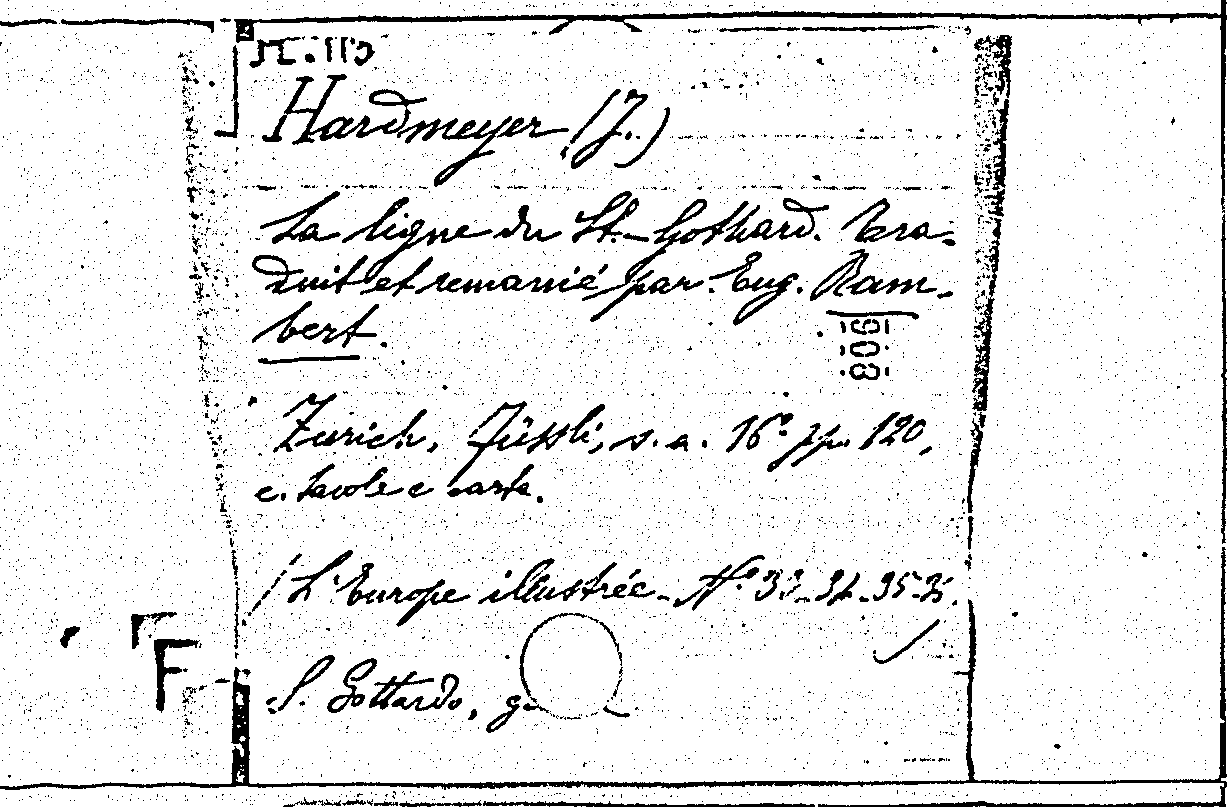 Hardmeyer (J.)
La ligne du St.-Gothard. Tra-
duit et remanié par Eug. Ram-
bert.
809
Zurich, Füssli, s. a. 16° pp. 120,
c. tavole e carta.
(L'Europe illustrée - N° 33-34-35-
S. Gottardo,
F